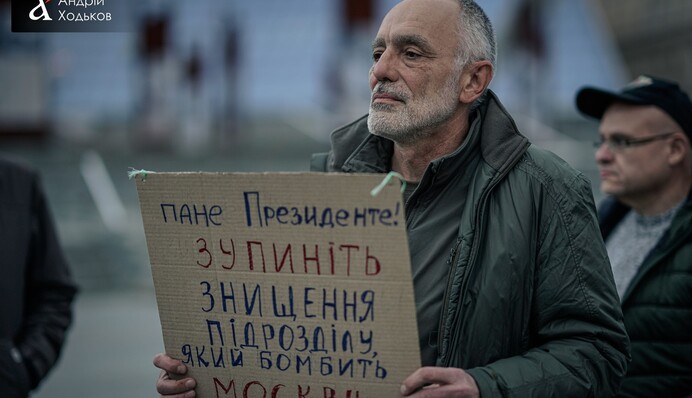 Андрій
Ходьков
пане Президенте!
ЗУПИНІТЬ
ЗНИЩЕННЯ
ПІДРОЗДІЛУ,
ЯКИЙ БОМБИТЬ
МОСКВУ